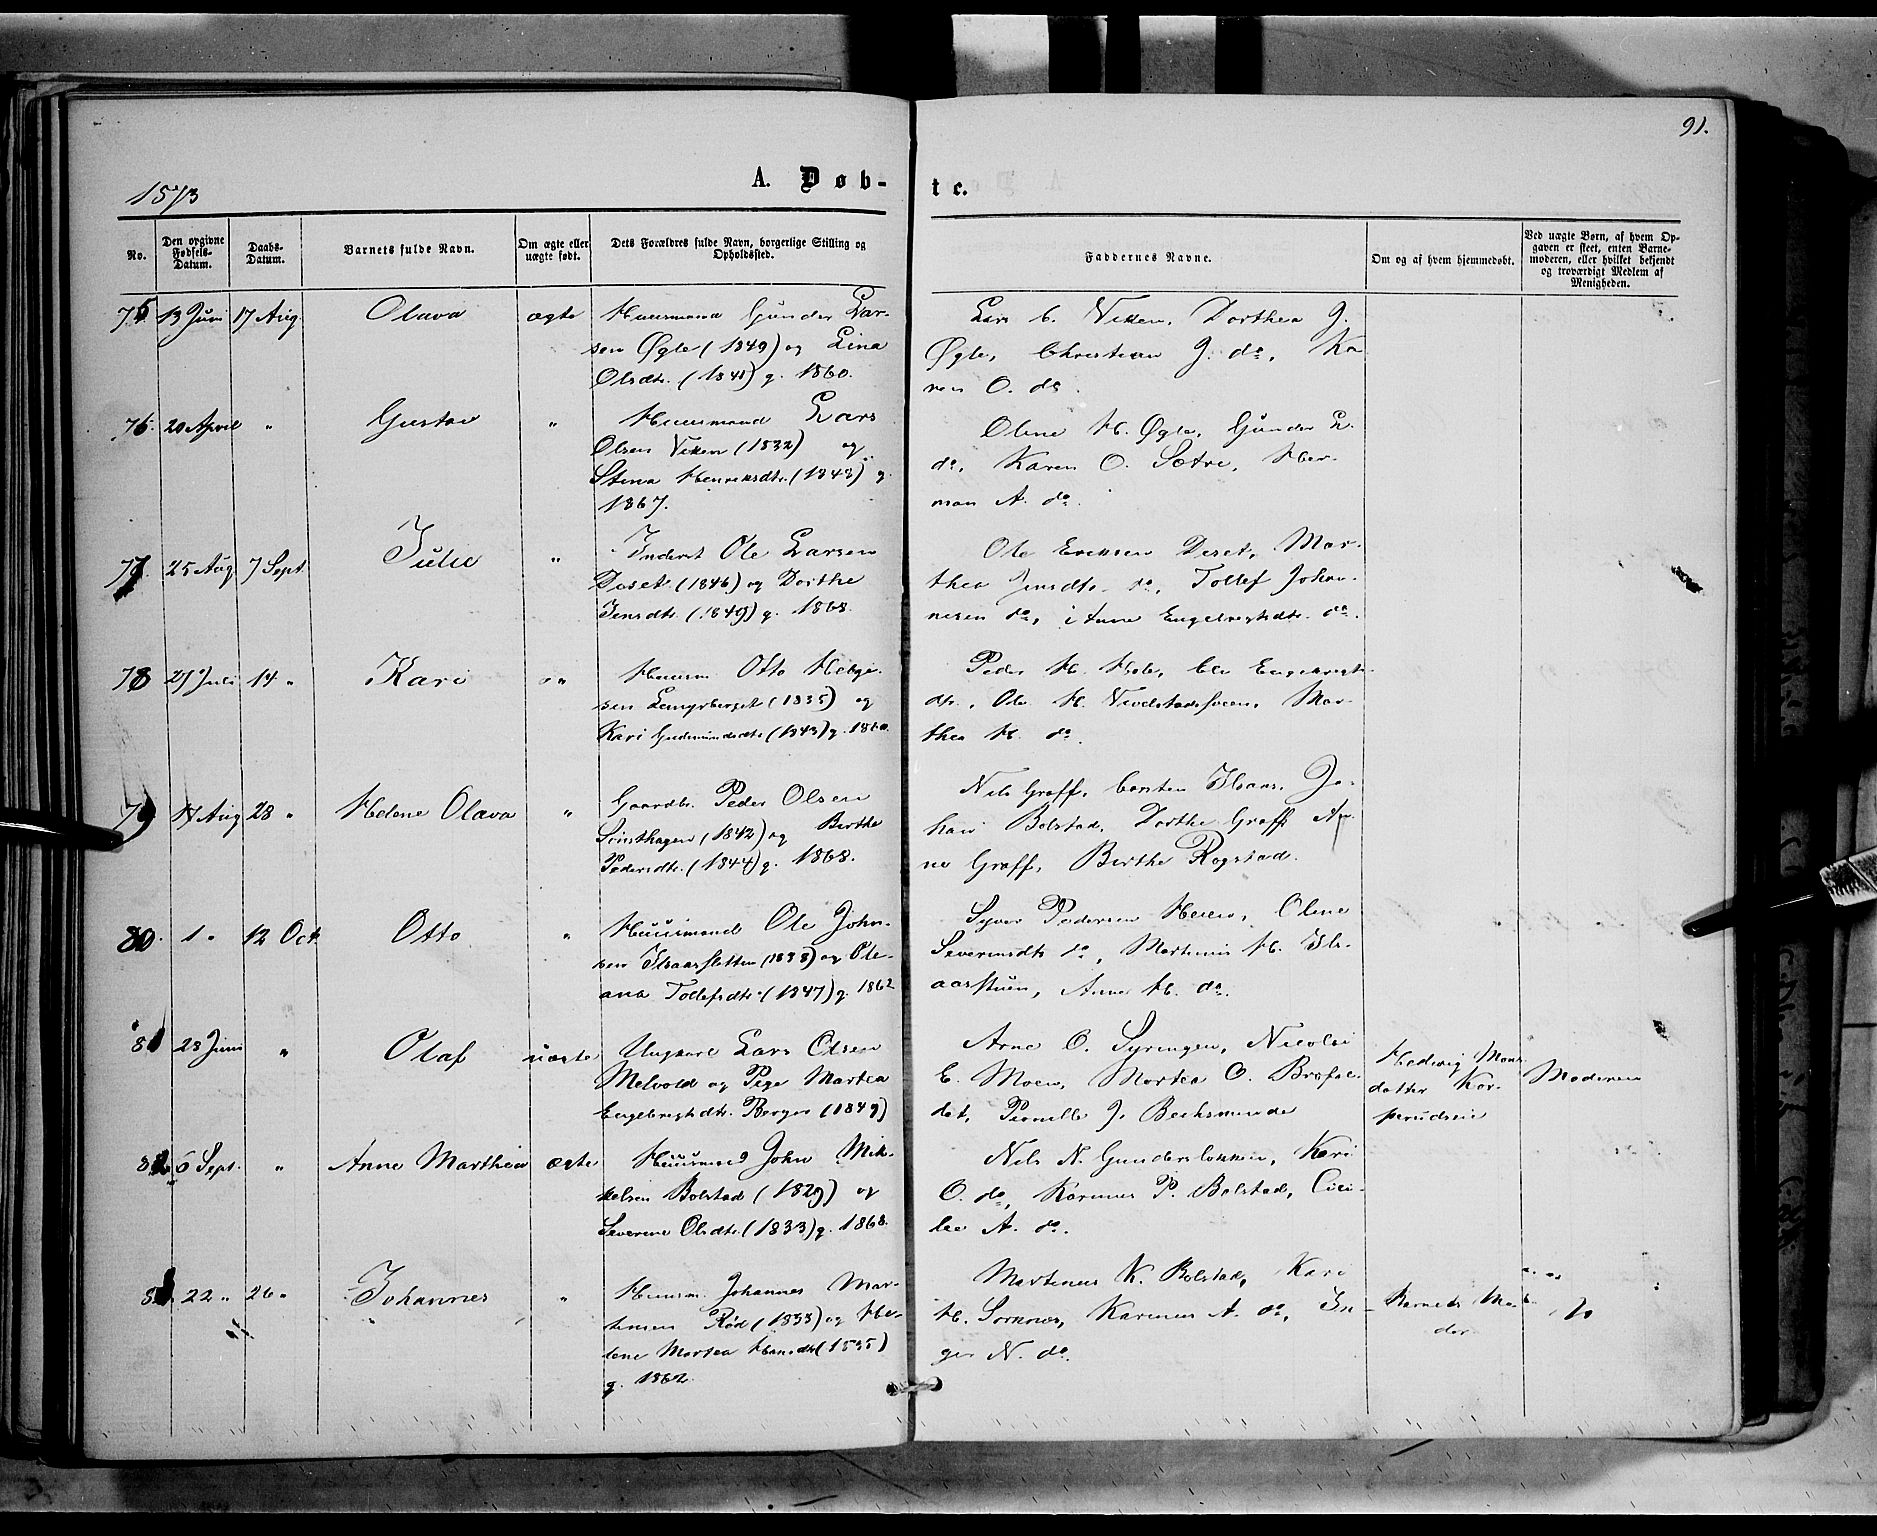 91.
1873
A. Døb-
te.
No.
Den opgivne Fødsels-Datum.
Daabs-Datum.
Barnets fulde Navn.
Om ægte eller uægte født.
Dets Forældres fulde Navn, borgerlige Stilling og Opholdssted.
Faddernes Navne.
Om og af hvem hjemmedøbt.
Ved uægte Børn, af hvem Op-
gaven er skeet, enten Barne-
moderen, eller hvilket bekjendt
og troværdigt Medlem af
Menigheden.
75 13 Juni 17 Aug. Olava ægte Huusmand Gunder Lar-
sen Øgle (1840) og Lina
Olsdtr. (1841) g. 1860.
Lars C. Viken, Dorthea J.
Øgle, Christian J. do, Ka
ren O. do
76. 20 April " Gustav " Huusmand Lars
Olsen Viken (1832) og
Stena Henriksdtr. (1843) g.
1867.
Oline H. Øgle, Gunder L.
do, Karen O. Sætre, Her-
man A. do.
77. 25 Aug 7 Sept. Julie " Inderst Ole Larsen
Deset (1846) og Dorthe
Jensdtr. (1849) g. 1868.
Ole Eriksen Deset, Mar-
thea Jensdtr. do, Tollef Johan-
nesen do, Anne Engebregtsdtr. do.
78 27 Juli 14 " Kari " Huusm. Otto Helge-
sen (1835) og
Kari Gudmundsdtr. (1843) g. 1860.
Peder H. Engebregts-
dtr., Ole H. Mar-
thea H. do.
79 14 Aug 28 " Helene Olava " Gaardbr. Peder Olsen
(1842) og Berthe
Pedersdtr. (1844) g. 1868.
Nils Graff, Carsten Ilsaas, Jo-
han Bolstad, Dorthe Graff An-
ne Graff, Berthe Rogstad.
80. 1 " 12 Oct. Otto " Huusmand Ole John-
sen Ilsaassletten (1838) og Ole-
ana Tollefsdtr. (1847) g. 1862
Syver Pedersen Heien, Oline
Severinsdtr. do, Martinus H. Ils-
aasstuen, Anne H. do.
81 28 Juni " Olaf uægte Ungkarl Lars Olsen
Melvold og Pige Martea
Engebregtsdtr. Berger (1849)
Arne O. Syringen, Nicolai
E. Moen, Martea O.
Pernille J.
Hedevig Mons
datter Kor-
perudseie
Moderen
82 6 Sept. " Anne Marthea ægte Huusmand John Mik-
kelsen Bolstad (1829) og
Severine Olsdtr. (1833) g. 1868.
Nils N. Gunderslokken, Kari
O. do, Karinus P. Bolstad, Ceci-
lie A. do.
83 22 " 26 " Johannes " Huusm. Johannes Mar-
tinsen Rød (1833) og He-
lene Martea Hansdtr. (1835)
g. 1862.
Martinus K. Bolstad, Kari
H. Sornæs, Karinus A. do, In-
ger N. do.
Barnets Mo-
der